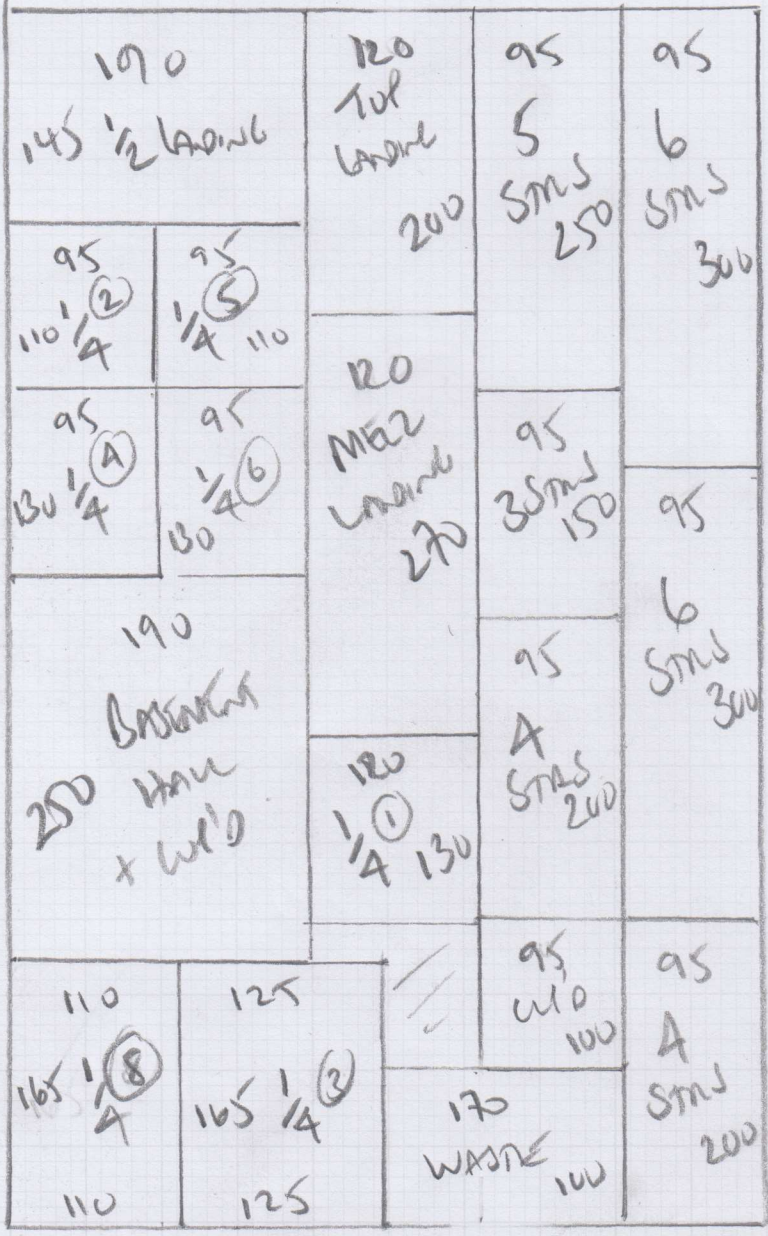 190
145 1/2 LANDING
95
110 1/4 2
95
1/4 5 110
95
130 1/4 4
95
1/4 6
130
190
BASEMENT
HALL
250
+ CUP'D
110
165 1/4 8
110
125
165 1/4 3
125
120
TOP
LANDING
200
120
MEZZ
LANDING
270
120
1/4 1 130
95
5
STRS
250
95
3 STRS
150
95
4
STRS
200
95
CUP'D
100
170
WASTE
100
95
6
STRS
300
95
6
STRS
300
95
4
STRS
200